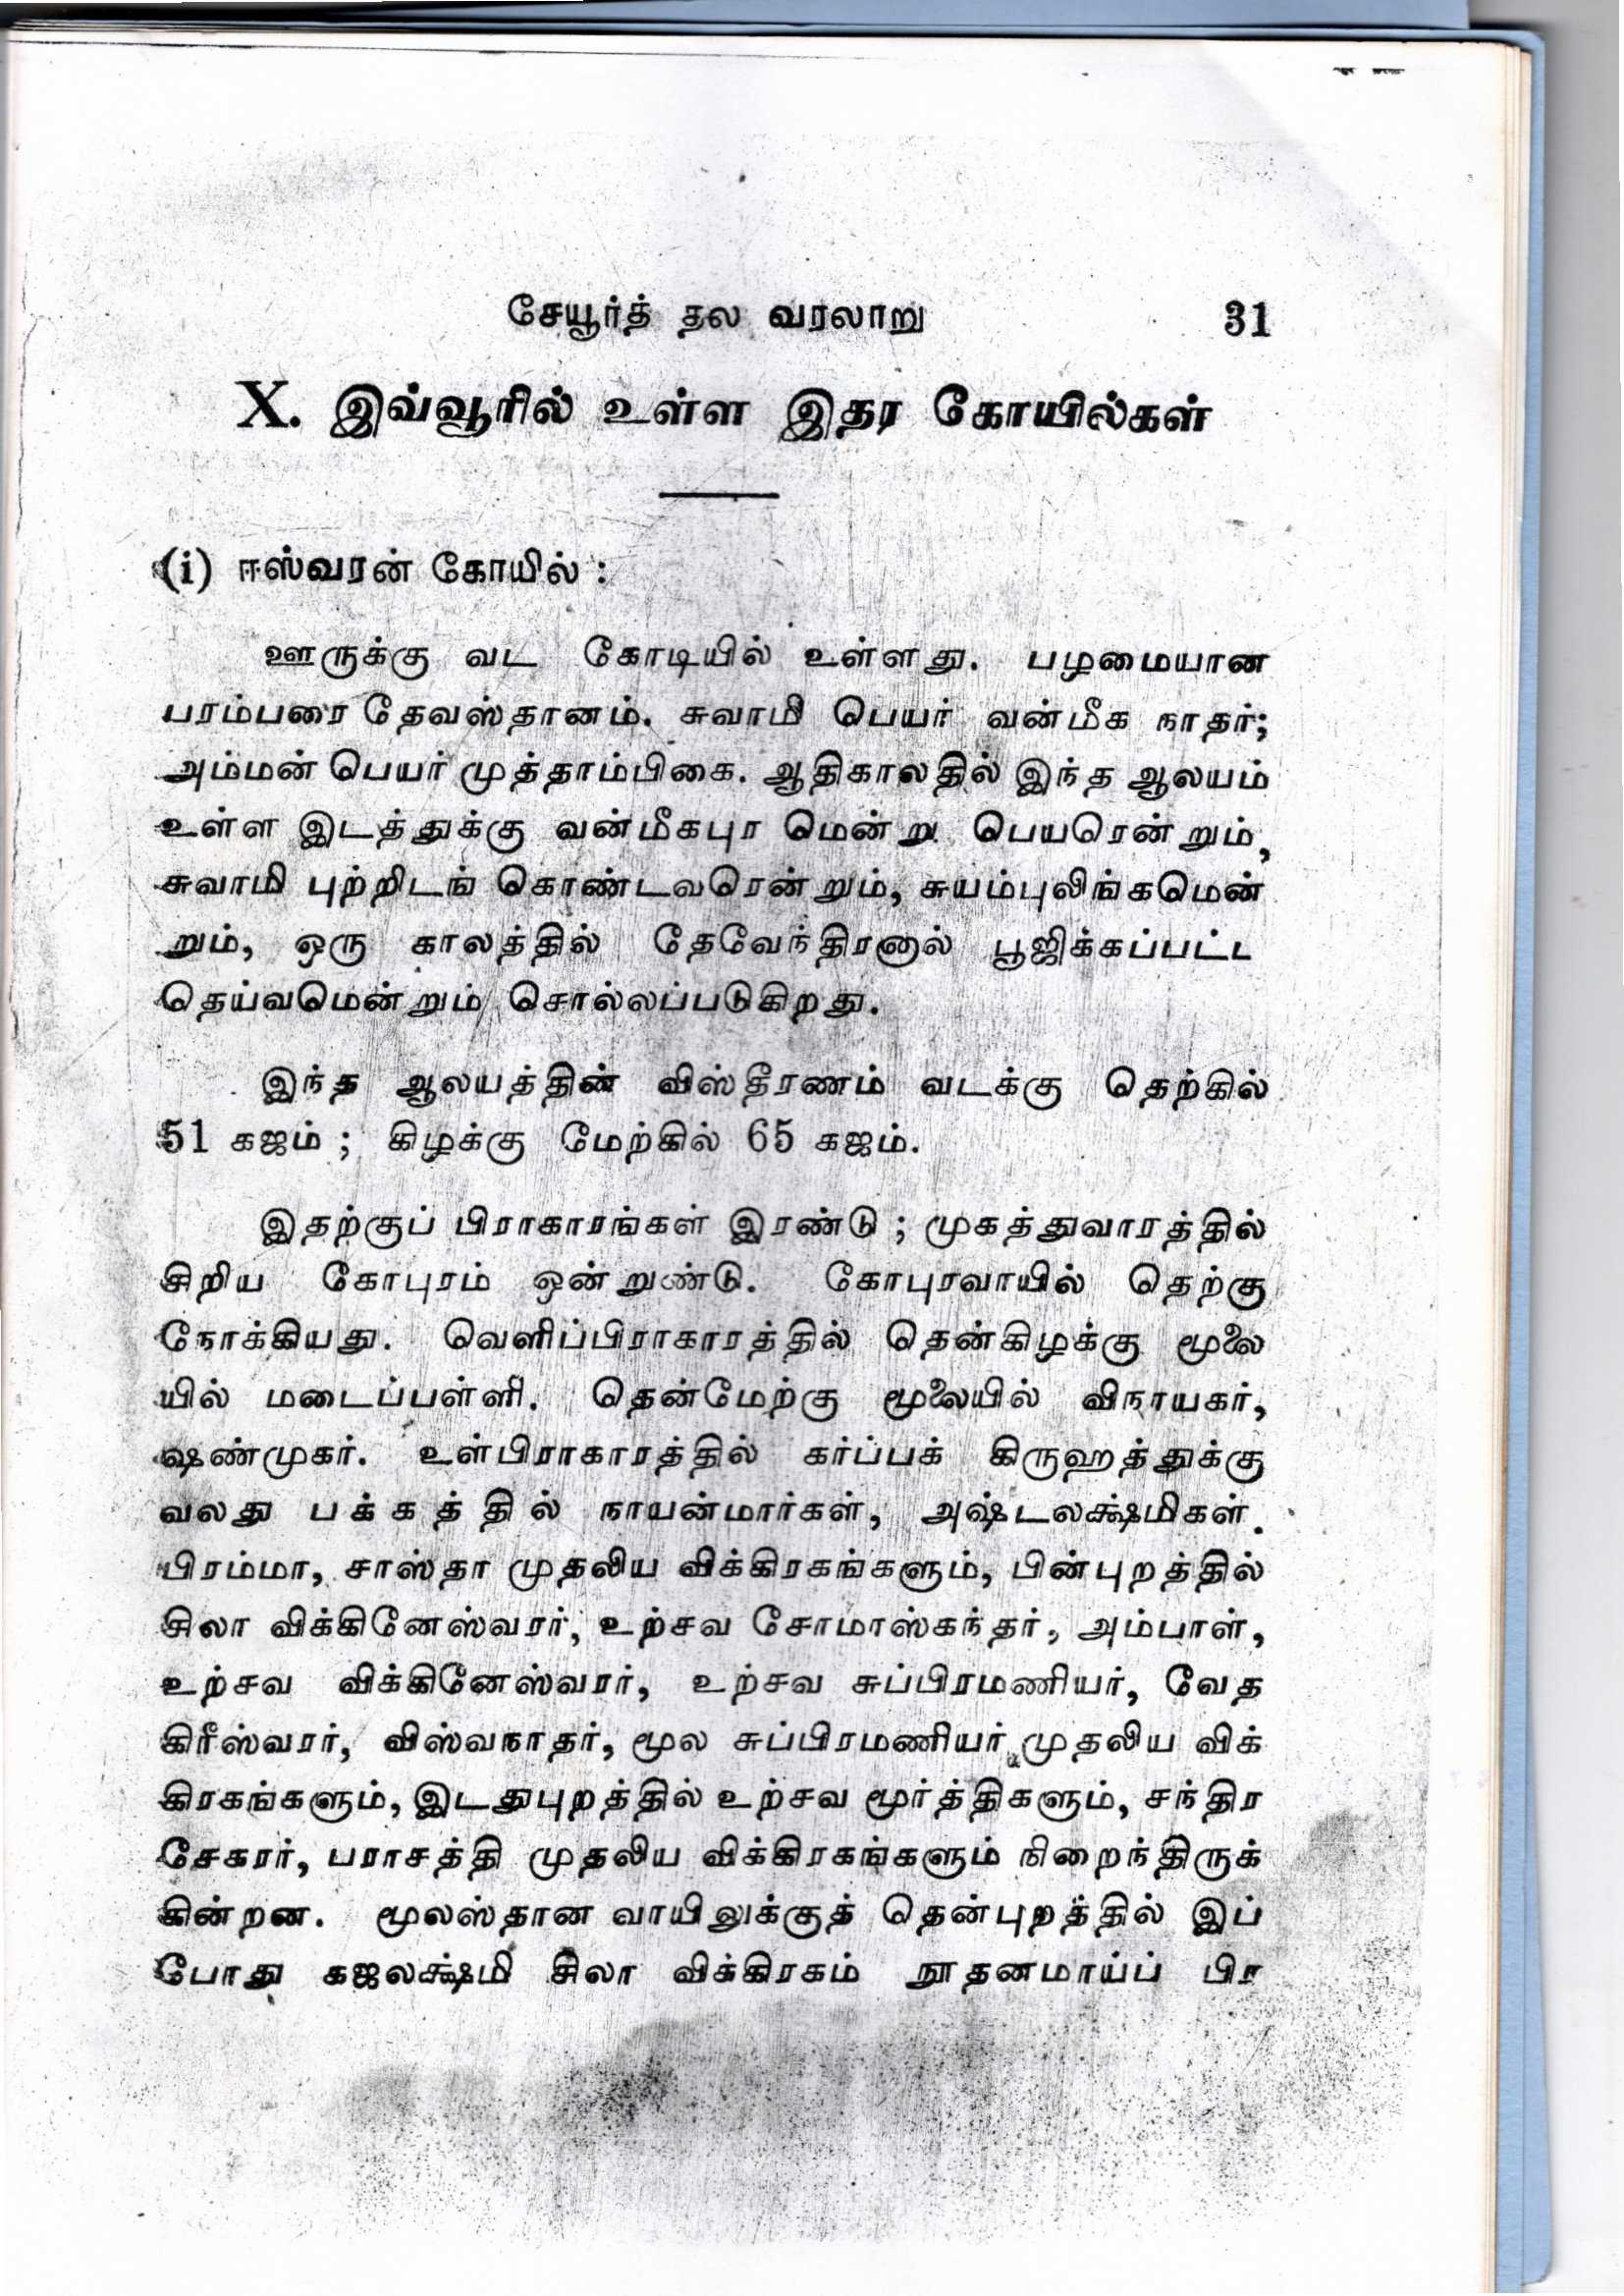 சேயூர்த் தல வரலாறு 31
X. இவ்வூரில் உள்ள இதர கோயில்கள்
(i) ஈஸ்வரன் கோயில் :
ஊருக்கு வட கோடியில் உள்ளது. பழமையான
பரம்பரை தேவஸ்தானம். சுவாமி பெயர் வன்மீக நாதர்;
அம்மன் பெயர் முத்தாம்பிகை. ஆதிகாலதில் இந்த ஆலயம்
உள்ள இடத்துக்கு வன்மீகபுர மென்று பெயரென்றும்,
சுவாமி புற்றிடங் கொண்டவரென்றும், சுயம்புலிங்கமென்
றும், ஒரு காலத்தில் தேவேந்திரனால் பூஜிக்கப்பட்ட
தெய்வமென்றும் சொல்லப்படுகிறது.
இந்த ஆலயத்தின் விஸ்தீரணம் வடக்கு தெற்கில்
51 கஜம் ; கிழக்கு மேற்கில் 65 கஜம்.
இதற்குப் பிராகாரங்கள் இரண்டு ; முகத்துவாரத்தில்
சிறிய கோபுரம் ஒன்றுண்டு. கோபுரவாயில் தெற்கு
நோக்கியது. வெளிப்பிராகாரத்தில் தென்கிழக்கு மூலை
யில் மடைப்பள்ளி. தென்மேற்கு மூலையில் விநாயகர்,
ஷண்முகர். உள்பிராகாரத்தில் கர்ப்பக் கிருஹத்துக்கு
வலது பக்கத்தில் நாயன்மார்கள், அஷ்டலக்ஷ்மிகள்.
பிரம்மா, சாஸ்தா முதலிய விக்கிரகங்களும், பின்புறத்தில்
சிலா விக்கினேஸ்வரர், உற்சவ சோமாஸ்கந்தர், அம்பாள்,
உற்சவ விக்கினேஸ்வரர், உற்சவ சுப்பிரமணியர், வேத
கிரீஸ்வரர், விஸ்வநாதர், மூல சுப்பிரமணியர் முதலிய விக்
கிரகங்களும், இடதுபுறத்தில் உற்சவ மூர்த்திகளும், சந்திர
சேகரர், பராசத்தி முதலிய விக்கிரகங்களும் நிறைந்திருக்
கின்றன. மூலஸ்தான வாயிலுக்குத் தென்புறத்தில் இப்
போது கஜலக்ஷ்மி சிலா விக்கிரகம் நூதனமாய்ப் பிர